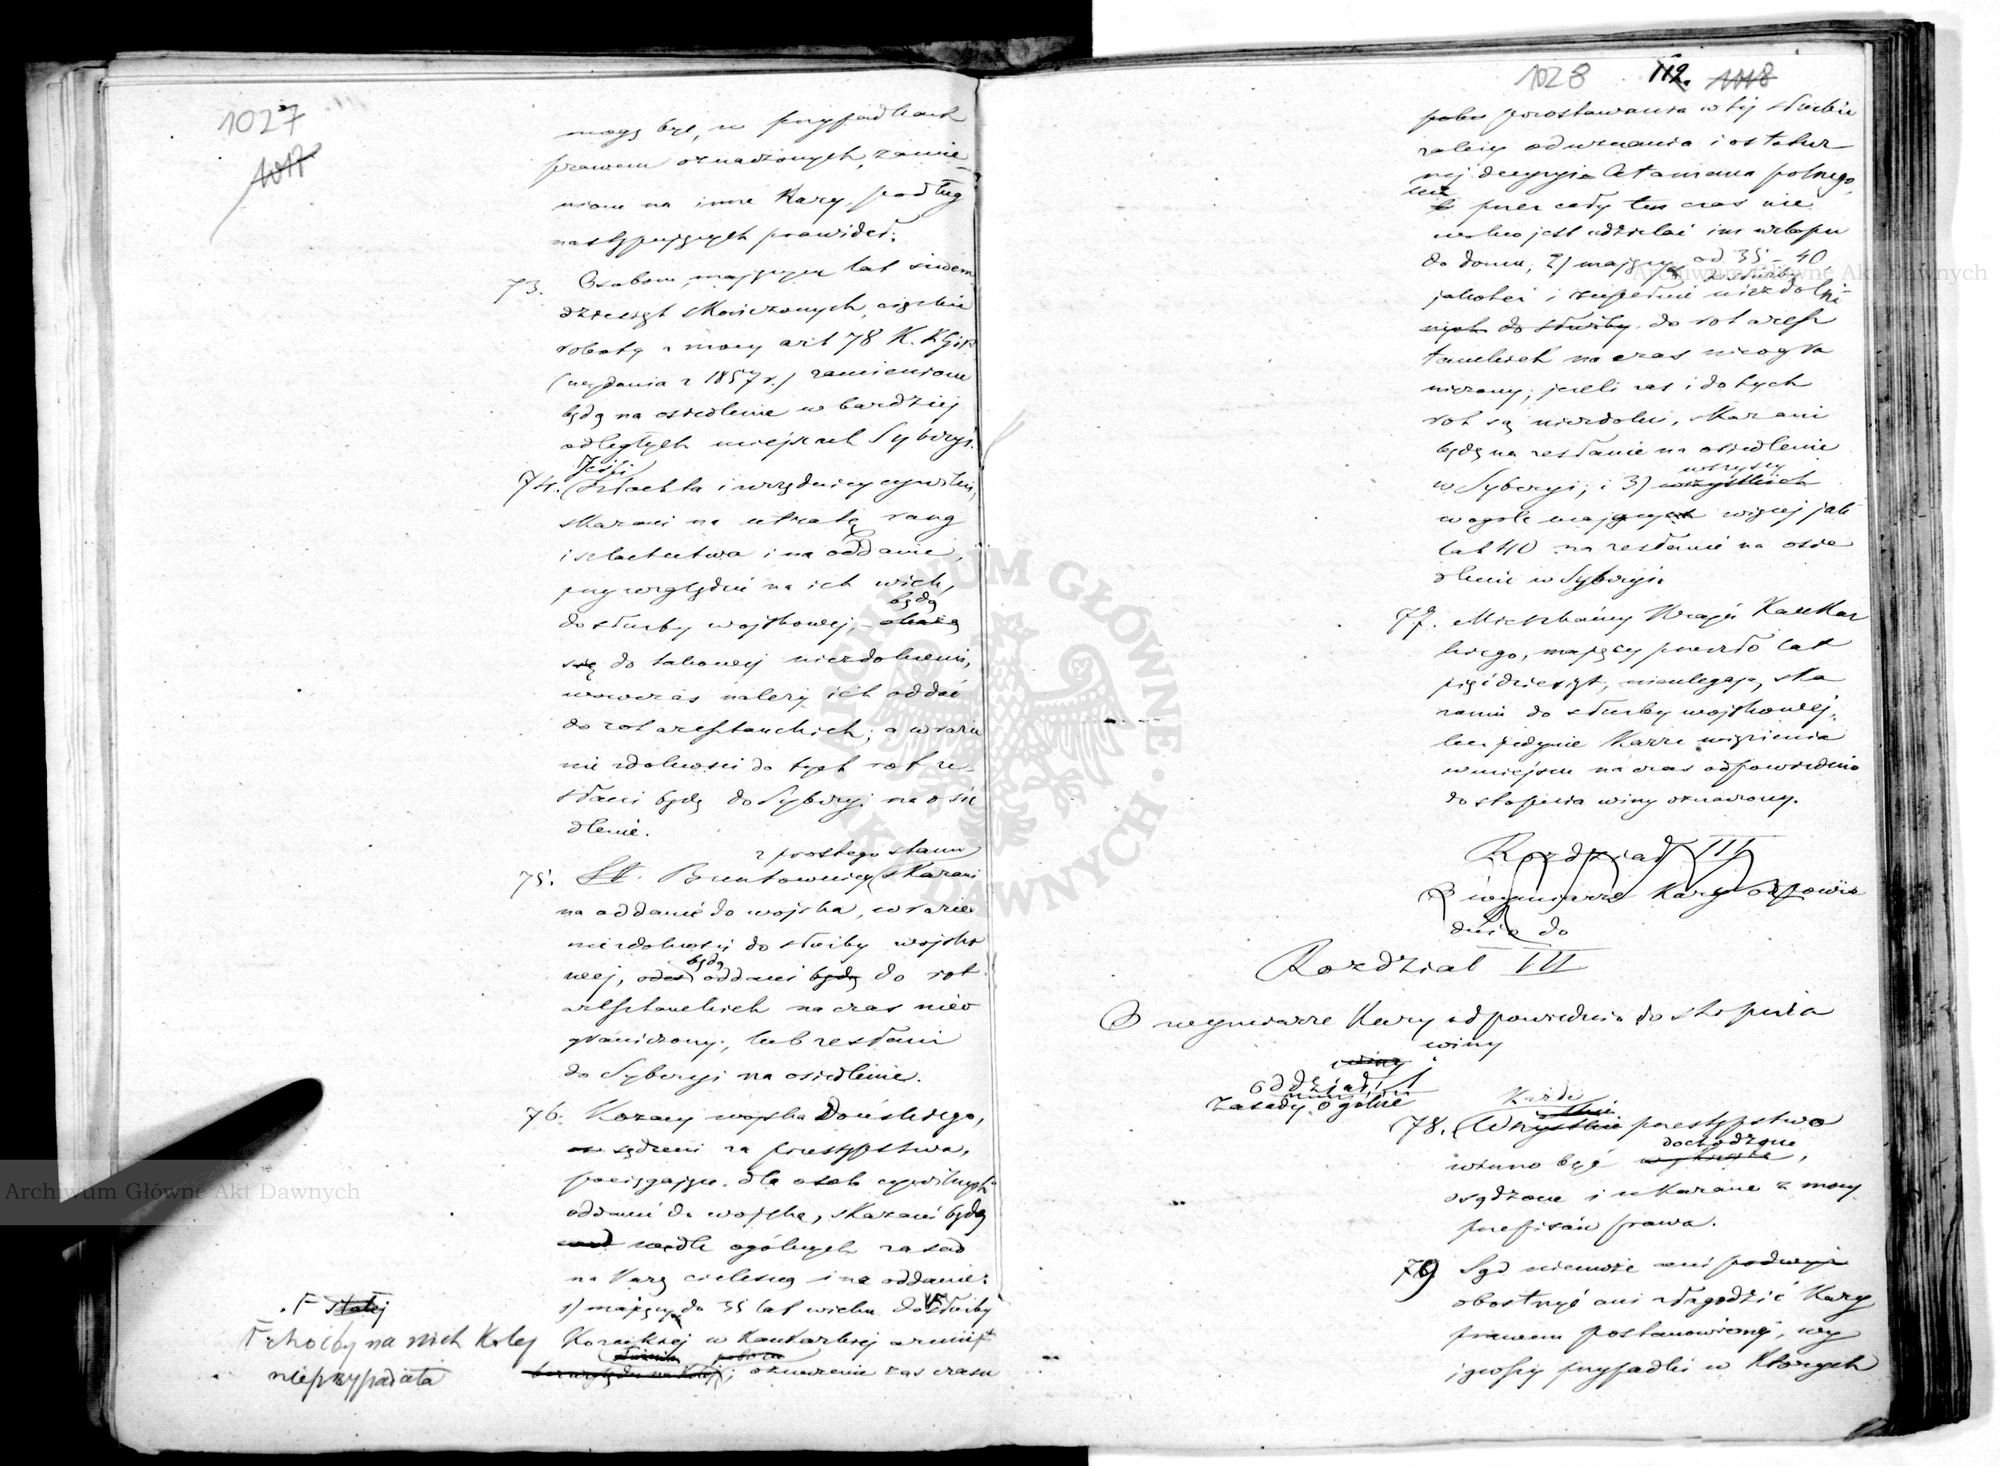 1027
1017
mogą być, w przypadkach
prawem oznaczonych, zamie-
nione na inne Kary, podług
następujących prawideł:
73. Osobom, mającym lat siedem
dziesiąt skończonych, ciężkie
roboty z mocy art 78 K. K. G. i P.
(wydania z 1857 r.) zamienione
będą na osiedlenie w bardziej
odległych miejscach Syberyi.
Jeśli
74. Szlachta i urzędnicy cywilni,
skazani na utratę rang
i szlachectwa i na oddanie,
przy względzie na ich wiek,
będą
do służby wojskowej,
się do takowej niezdolnemi,
wówczas należy ich oddać
do rot aresztanckich; a w razie
niezdolności do tych rot ze-
słani będą do Syberyi na osie
dlenie.
z prostego stanu
75. Buntownicy skazani
na oddanie do wojska, w razie
niezdolności do służby wojsko
będą
wej, oddani będą do rot
aresztanckich na czas nieo
graniczony, lub zesłani
do Syberyi na osiedlenie.
76. Kozacy wojska Dońskiego,
sądzeni za przestępstwa,
pociągające dla osób cywilnych
oddanie do wojska, skazani będą
wedle ogólnych zasad
na Karę cielesną i na oddanie:
1) mający do 35 lat wieku do służby
Kozackiej w Kaukazkiej armii
bez względu na Kolej; oznaczenie zaś czasu
F stałej
F choćby na nich Kolej
nieprzypadała
1028 112. 1018
pozostawania w tej służbie
zależy od uznania i ostatecz
nej decyzyi Atamana polnego,
lecz
przez cały ten czas nie
wolno jest udzielać im urlopu
do domu; 2) mający od 35 – 40
do służby
jakoteż i zupełnie niezdolni
nych do służby do rot aresz
tanckich na czas nieogra
niczony; jeżeli zaś i do tych
rot są niezdolni, skazani
będą na zesłanie na osiedlenie
wszyscy
w Syberyi; i 3) wszystkich
w ogóle mających więcej jak
lat 40 na zesłanie na osie
dlenie w Syberyi.
77. Mieszkańcy Kraju Kaukaz
kiego, mający przeszło lat
pięćdziesiąt, nieulegają, ska
zaniu do służby wojskowej,
lecz jedynie Karze więzienia
w miejscu na czas odpowiednio
do stopnia winy oznaczony.
Rozdział III
O wymiarze Kary odpowie
dnio do
Rozdział III
O wymiarze Kary odpowiednio do stopnia
winy
winy
Oddział I
Zasady ogólne
Każde
78. Wszystkie przestępstwo
dochodzone
winno być wykryte,
osądzone i ukarane z mocy
przepisów prawa.
79 Sąd niemoże ani podwyż
obostrzyć ani złagodzić Kary
prawem postanowionej, wy
jąwszy przypadki w Których
Archiwum Główne Akt Dawnych
Archiwum Główne Akt Dawnych
ARCHIWUM GŁÓWNE AKT DAWNYCH